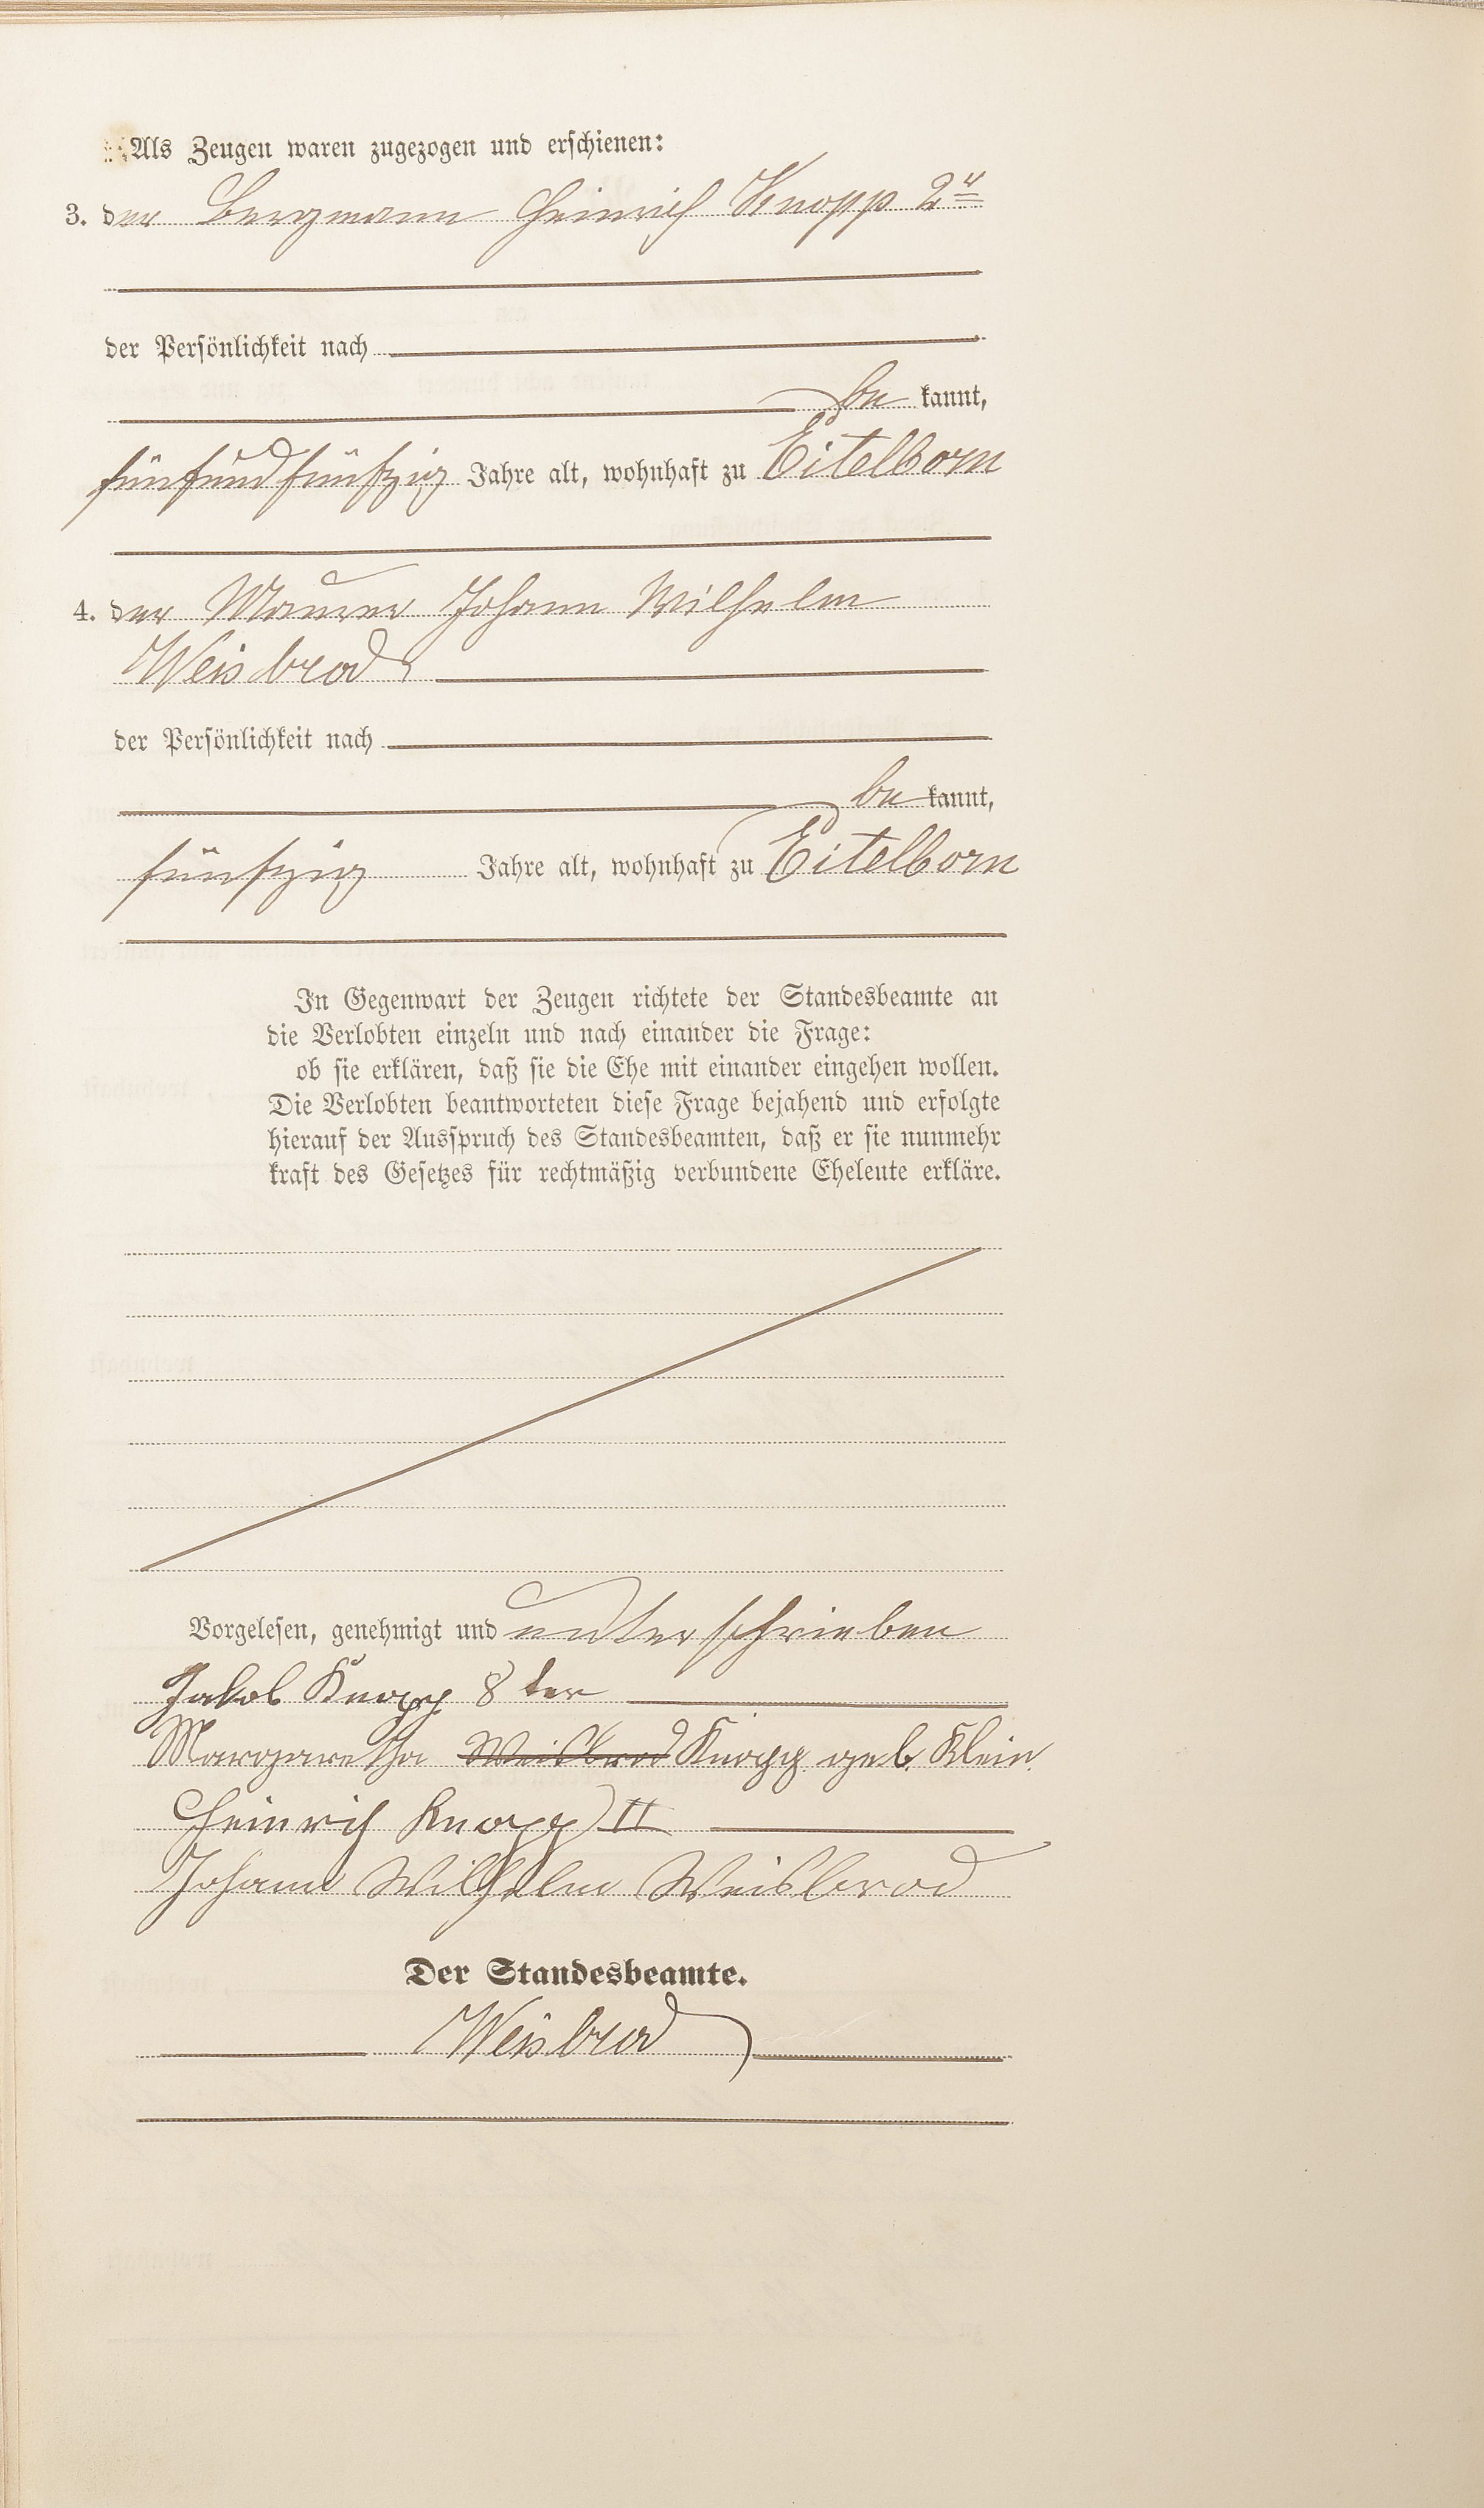 Als Zeugen waren zugezogen und erschienen:
3. der Bergmann Heinrich Knopp 2r
der Persönlichkeit nach
be kannt,
fünfundfünfzig Jahre alt, wohnhaft zu Eitelborn
4. der Maurer Johann Wilhelm
Weisbrod
der Persönlichkeit nach
be kannt,
fünfzig Jahre alt, wohnhaft zu Eitelborn
In Gegenwart der Zeugen richtete der Standesbeamte an
die Verlobten einzeln und nach einander die Frage:
ob sie erklären, daß sie die Ehe mit einander eingehen wollen.
Die Verlobten beantworteten diese Frage bejahend und erfolgte
hierauf der Ausspruch des Standesbeamten, daß er sie nunmehr
kraft des Gesetzes für rechtmäßig verbundene Eheleute erkläre.
Vorgelesen, genehmigt und unterschrieben
Jakob Knopp 8 ter
Margaretha Weisbrod Knopp geb. Klein
Heinrich Knopp II
Johann Wilhelm Weisbrod
Der Standesbeamte.
Weisbrod